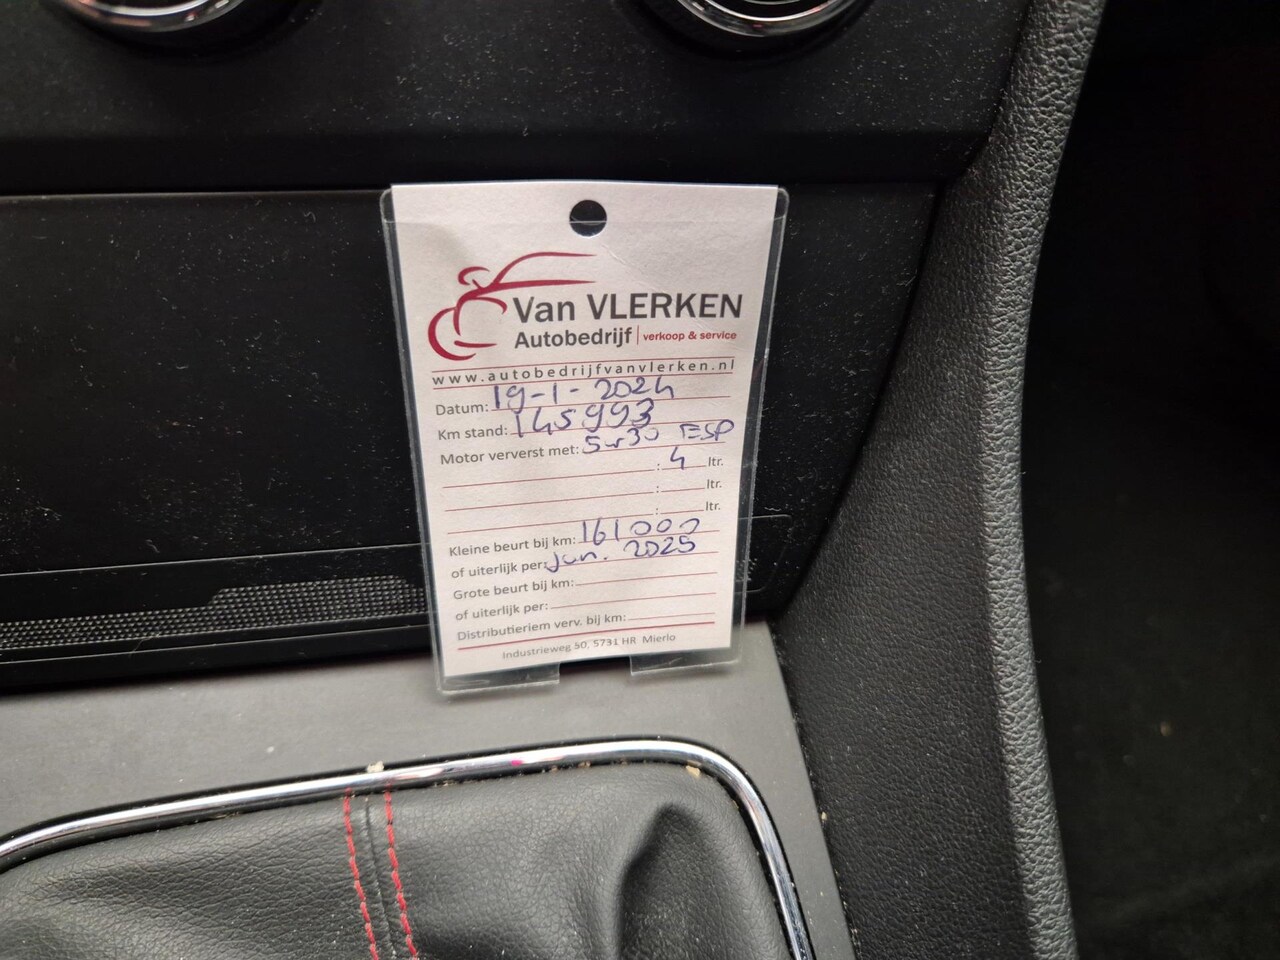 Van VLERKEN
Autobedrijf | verkoop & service
www.autobedrijfvanvlerken.nl
Datum: 19-1-2024
Km stand: 145993
Motor ververst met: 5w30 ESP
: 4 ltr.
: ltr.
: ltr.
Kleine beurt bij km: 161000
of uiterlijk per: jun. 2025
Grote beurt bij km:
of uiterlijk per:
Distributieriem verv. bij km:
Industrieweg 50, 5731 HR Mierlo